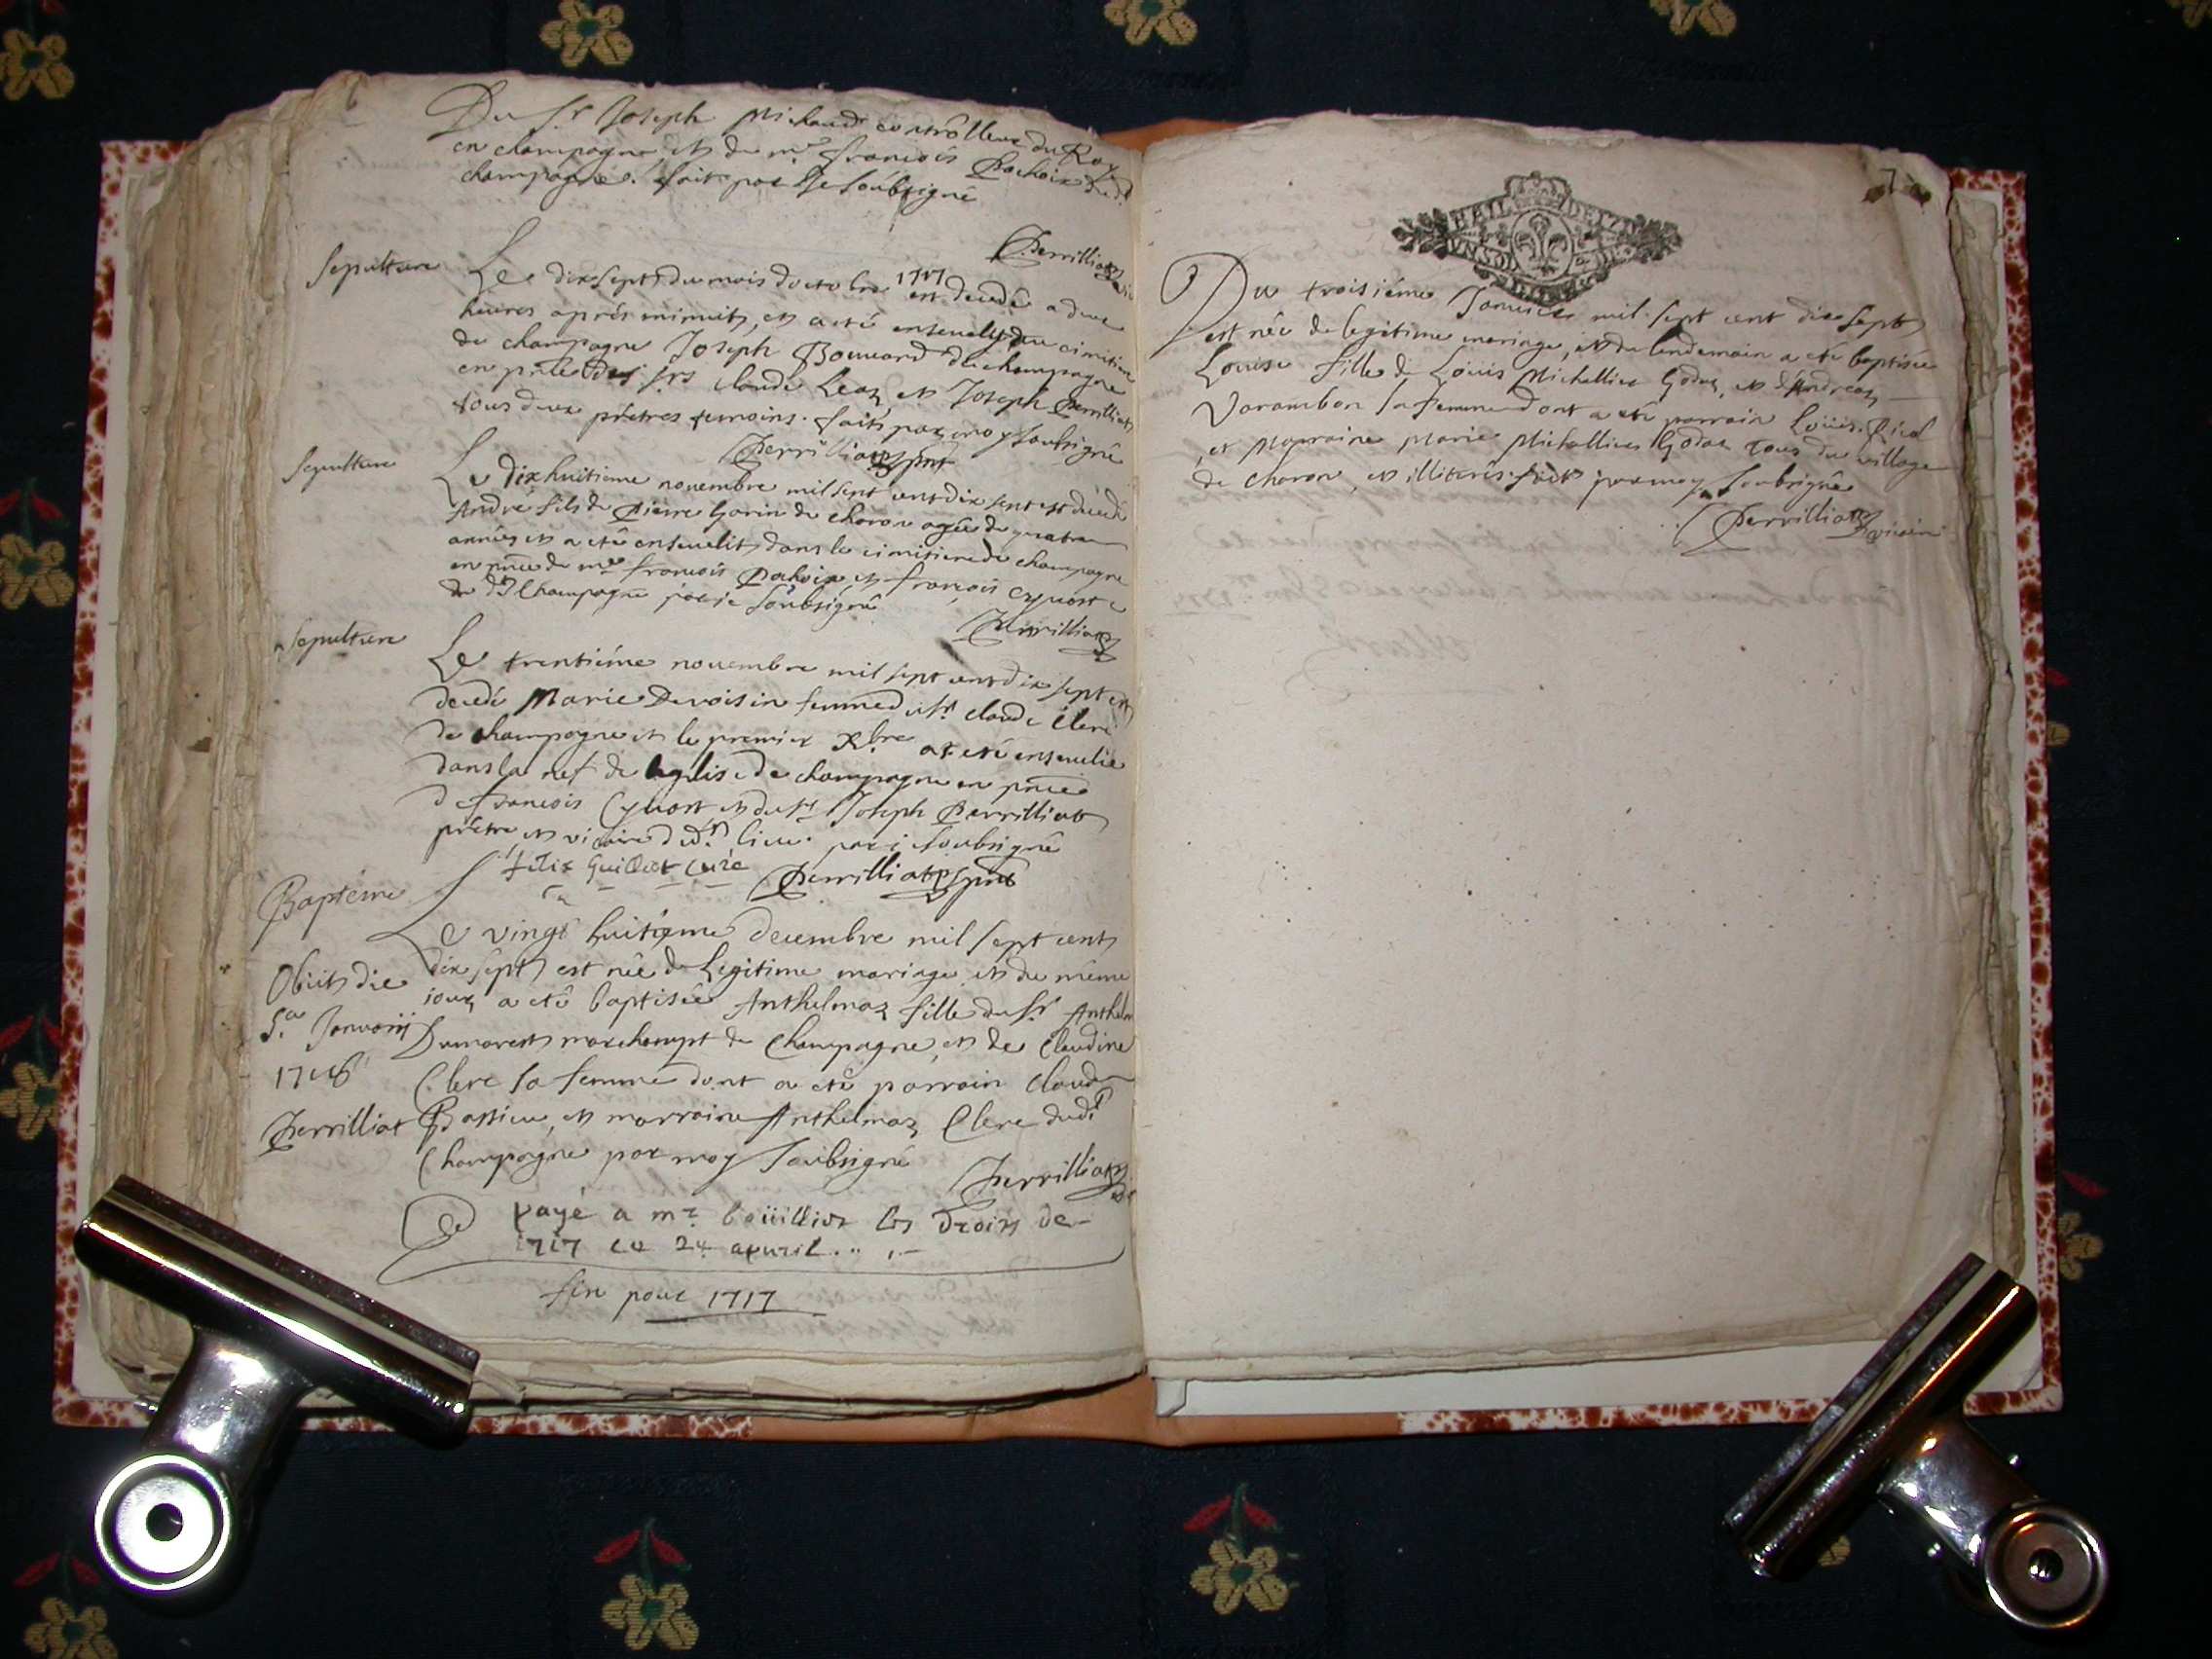 6
Du Sr Joseph Michaud controlleur du Roy
en champagne, et de mre francois Pochoix dud.
champagne. fait par je soubsigné
Perrilliat vic
Sepulture
Le dix sept du mois doctobre 1717 est decedé a deux
heures aprés minuit, et a eté ensevely au cimitiere
de champagne Joseph Bouvard de champagne
en pnce des srs claude Leaz et Joseph Perrilliat
tous deux prêtres temoins. fait par moy soubsigné
Perrilliat prt
Sepulture
Le dix huitieme novembre mil sept cent dix sept est decedé
André fils de Pierre Gorin de charon agée de quatre
années et a eté ensevelit dans le cimitiere de champagne
en pnce de mre francois Pochoix et françois Cyvost
du dt Champagne par je soubsigné
Perrilliat
Sepulture
Le trentiéme novembre mil sept cent dix sept est
decedé Marie Devoisin femme du sr claude Clerc
de champagne et le premier Xbre a eté ensevelie
dans la nef de leglise de champagne en pnce
de francois Cyvost et du sr Joseph Perrilliat
prêtre et vicaire dudt lieu. par je soubsigné
felix Guillot curé
Perrilliat prt
Baptême
Le vingt huitiéme decembre mil sept cent
dix sept est née de legitime mariage et du même
jour a eté baptisée Anthelmaz fille du sr Anthelm
Dumarest marchempt de Champagne, et de Claudine
Clerc sa femme dont a eté parrain Claude
Bassieu, et marraine Anthelmaz Clerc dudt
Champagne par moy soubsigné
Perrilliat
Obiit die
5.a Januarij
1718
Perrilliat
payé a mr boüillier les Droits de
1717 ce 24 apuril
fin pour 1717
7
BAIL DE
VN SOL
Du troisiéme Janvier mil sept cent dix sept
est née de legitime mariage, et du lendemain a eté baptisée
Louise fille de Loüis Michallier Godaz, et d'Andreaz
Varambon sa femme dont a eté parrain Loüis
et Marraine Marie Michallier Godaz tous du village
de charon, et illiterés. fait par moy soubsigné
Perrilliat vicaire